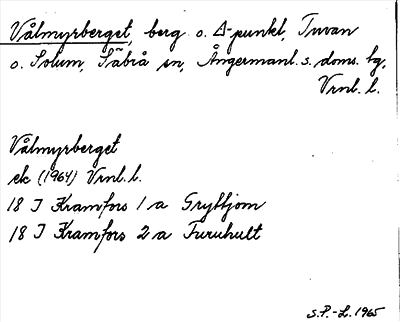 Vålmyrberget, berg o. Δ-punkt, Tuvan
o. Solum, Säbrå sn, Ångermanl. s. doms. hg,
Vrnl. l.
Vålmyrberget
ek (1964) Vrnl. l.
18 I Kramfors 1 a Gryttjom
18 I Kramfors 2 a Furuhult
S.P.-L. 1965